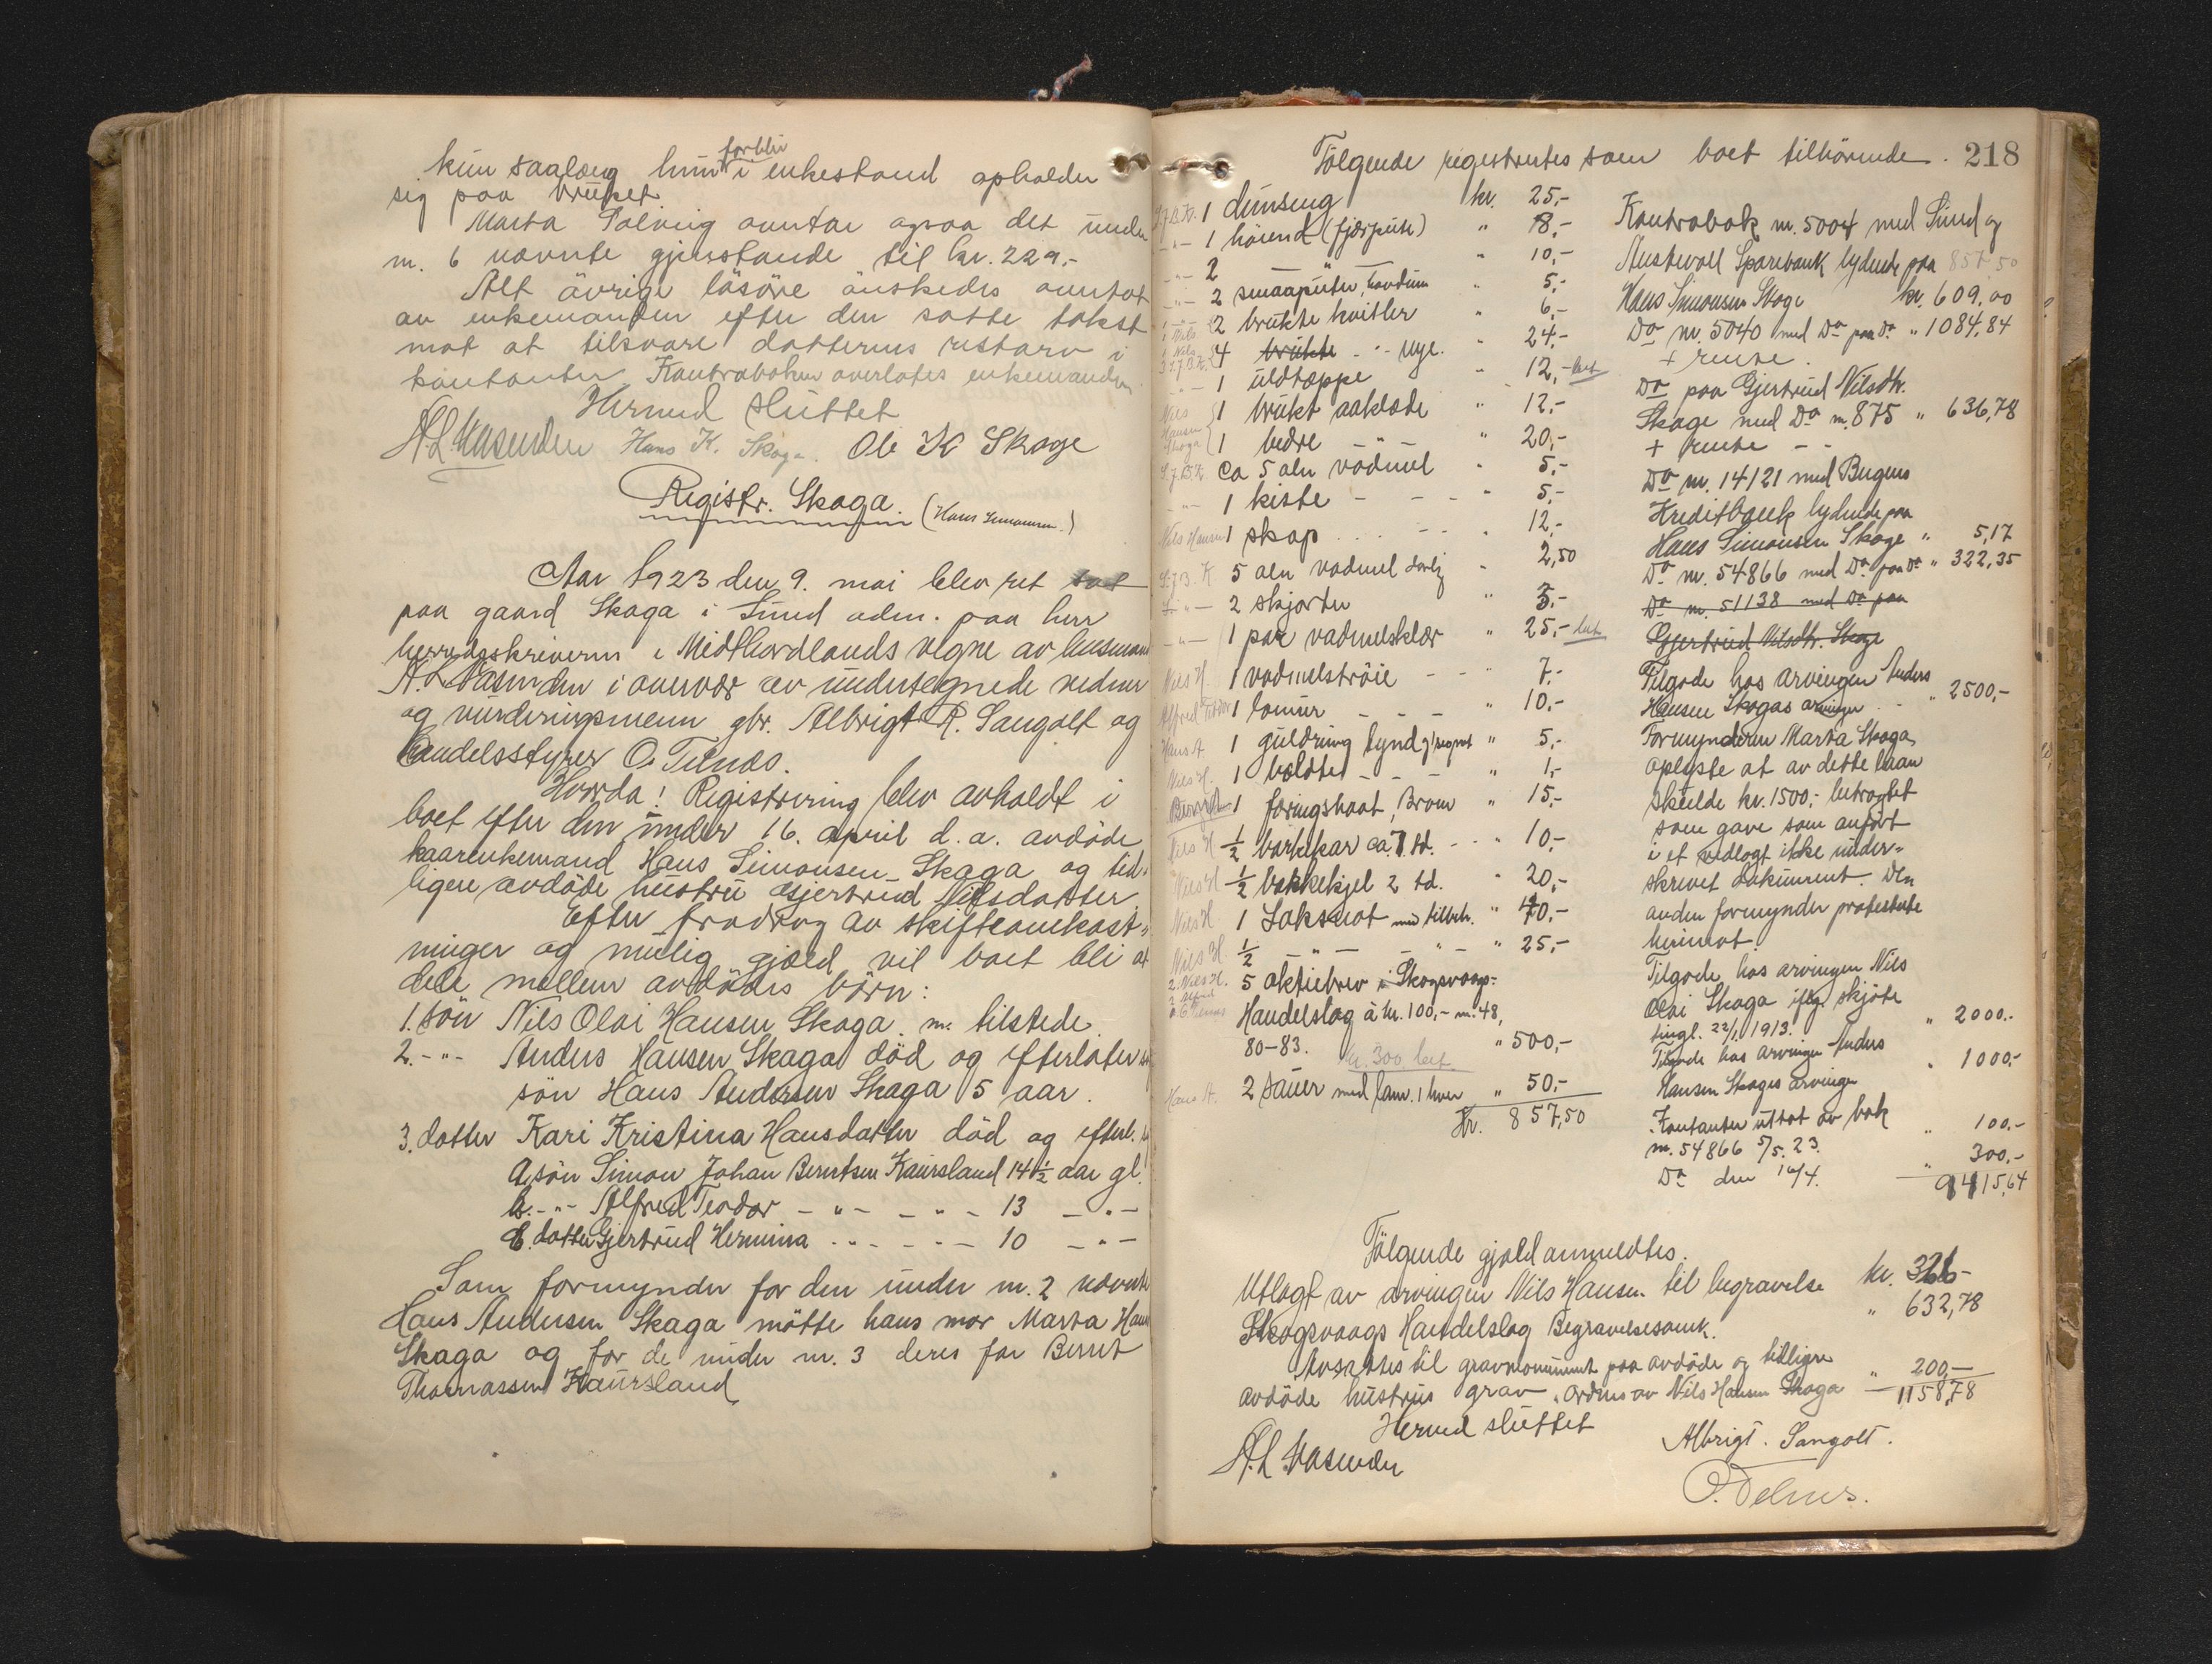 forblir
kun saalæng hun i enkestand opholder
sig paa bruket.
Marta Solveig avntar ogsaa det under
nr. 6 nævnte gjenstande til kr. 229.-
Alt övrige lösöre önskedes avntat
av enkemanden efter den satte takst
mot at tilsvare datterens restarv i
kontanter. Kontraboken overlates enkemanden
Hermed sluttet
A L Vasenden Hans K. Skaga. Ole K Skage
Registr. Skaga. (Hans Simonsen.)
Aar 1923 den 9. mai blev ret sat
paa gaard Skaga i Sund adm. paa herr
herredsskriveren i Midthordlands vegne av lensmand
A. L Vasenden i overvær av undertegnede vidner
og vurderingsmenn gbr. Albrigt R. Sangolt og
handelsstyrer O. Telnes.
Hvorda! Registrering blev avholdt i
boet efter den under 16. april d.a. avdöde
kaarenkemand Hans Simonsen Skaga og tid-
ligere avdöde hustru Gjertrud Nilsdatter.
Efter fradrag av skifteomkost-
ninger og mulig gjæld vil boet bli at
dele mellem avdödes börn:
1. sön Nils Olai Hansen Skaga. m. tilstede.
2. -"- Anders Hansen Skaga död og efterlater
sön Hans Andersen Skaga 5 aar.
3. datter Kari Kristina Hansdatter död og efterl.
a. sön Simon Johan Berntsen Kaursland 14 1/2 aar gl.
b. -"- Alfred Teodor -"- -"- 13 -"-
C. datter Gjertrud Hermina -"- -"- 10 -"-
Som formynder for den under nr. 2 nævnte
Hans Andersen Skaga mötte hans mor Marta
Skaga og for de under nr. 3 deres far Bernt
Thomassen Kaursland
Fölgende registrertes som boet tilhörende. 218
1 dunseng kr. 25,-
-"- 1 höiend (fjærpute) " 8,-
-"- 2 " 10,-
-"- 2 smaaputer, " 5,-
2 brukte kvitler " 6,-
4 brukte -"- nye. " 24,-
-"- 1 uldtæppe " 12,-
Nils 1 brukt aaklæde " 12,-
Hansen Skaga 1 bedre -"- " 20,-
ca 5 aln vadmel " 5,-
-"- 1 kiste - - - " 5,-
Nils Hansen 1 skap " 12,-
5 aln vadmel daarlig " 2,50
-"- 2 skjorter " 3,-
-"- 1 par vadmelsklær " 25,-
Nils H. 1 vadmelströie - - " 7,-
Alfred Teodor 1 lomur - - - " 10,-
Hans A 1 guldring tynd " 5,-
Nils H. 1 bæltet - - - " 1,-
1 föringsbaat, " 15,-
Nils H 1/2 barkekar ca. 7 td. " 10,-
Nils H 1/2 barkekjel 2 td. " 20,-
Nils H. 1 Laksnot med tilbeh. " 40,-
Nils H 1/2 -"- -"- " 25,-
2 Nils H. 5 aktiebrev i Skogsvaags-
Handelslag à kr. 100,- nr. 48,
80-83. kr. 300 " 500,-
Hans A. 2 sauer med lam. 1 hver " 50,-
Kr. 857,50
Kontrabok nr. 5004 med Sund og
Austevoll Sparebank lydende paa 857,50
Hans Simonsen Skage kr. 609,00
Do nr. 5040 med Do paa Do " 1084,84
+ rente.
Do paa Gjertrud Nilsdtr.
Skage med Do nr. 875 " 636,78
+ rente - -
Do nr. 14121 med Bergens
Kreditbank lydende paa
Hans Simonsen Skage " 5,17
Do nr. 54866 med Do paa Do " 322,35
Do nr. 51138 med Do paa
Gjertrud Nilsdtr. Skage
Tilgode hos arvingen Anders
Hansen Skagas arvinger " 2500,-
Formynderen Marta Skaga
oplyste at av dette laan
skulde kr. 1500,- betragtet
som gave som anfört
i et vedlagt ikke under-
skrevet dokument. Den
anden formynder protesterte
herimot.
Tilgode hos arvingen Nils
Olai Skaga iflg. skjöte
tingl. 22/1 1913. " 2000.-
Tilgode hos arvingen Anders
Hansen Skages arvinger " 1000.-
Kontanter uttat av bok
nr. 54866 5/5. 23. " 100.-
Do den 16/4. " 300,-
9415,64
Fölgende gjæld anmeldtes.
Utlagt av arvingen Nils Hansen til begravelse kr. 326-
Skogsvaags Handelslag Begravelsesomk. " 632,78
Avsættes til gravmonument paa avdöde og tidligere
avdöde hustrus grav. ordnes av Nils Hansen Skaga " 200,-
1158,78
Hermed sluttet
A. L Vasenden
Albrigt. Sangolt.
O. Telnes.